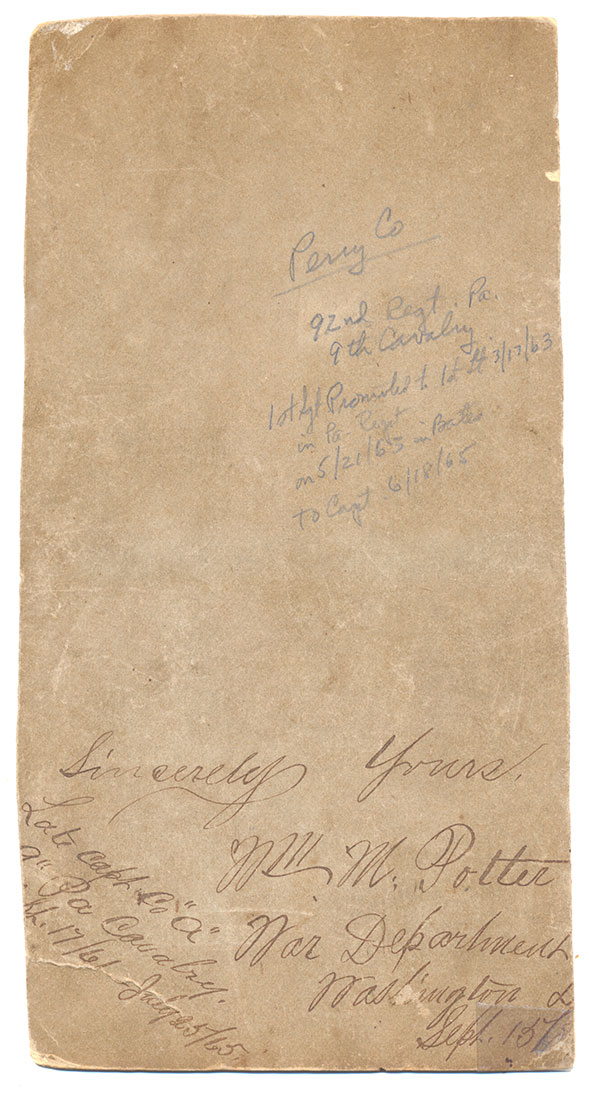 Perry Co
92nd Regt. Pa.
9th Cavalry
1st Sgt Promoted to 1st Lt 3/17/63
in Pa Regt
on 5/21/63 in Bates
to Capt 6/18/65
Sincerely Yours.
Wm M. Potter
War Department
Washington D
Sept. 15/
Late Capt. Co "A"
9" Pa Cavalry.
17/61 July 25/65.